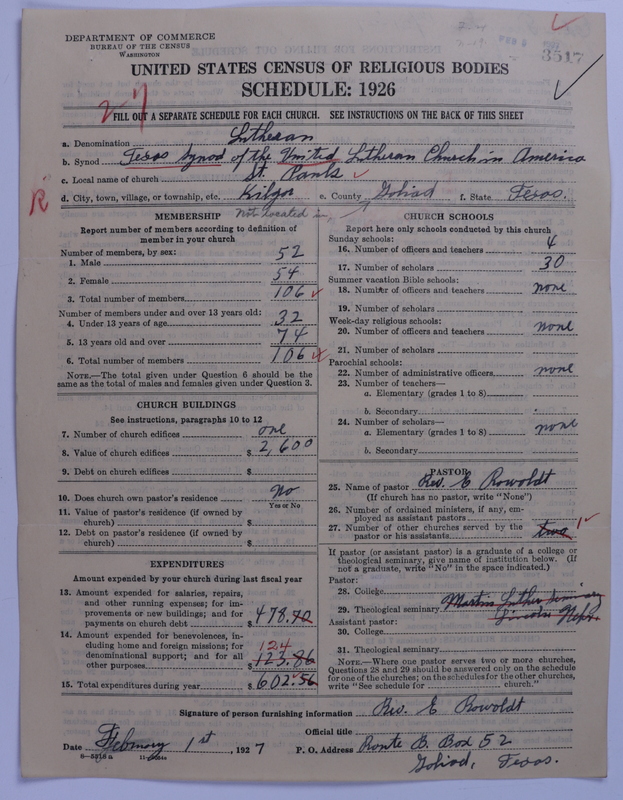 DEPARTMENT OF COMMERCE
BUREAU OF THE CENSUS
WASHINGTON
3517
UNITED STATES CENSUS OF RELIGIOUS BODIES
SCHEDULE: 1926
FILL OUT A SEPARATE SCHEDULE FOR EACH CHURCH. SEE INSTRUCTIONS ON THE BACK OF THIS SHEET
a. Denomination Lutheran
b. Synod Texas Synod of the United Lutheran Church in America
c. Local name of church St. Pauls
d. City, town, village, or township, etc. Kilgor e. County Goliad f. State Texas.
Not located in
MEMBERSHIP
Report number of members according to definition of
member in your church
Number of members, by sex:
1. Male 52
2. Female 54
3. Total number of members 106
Number of members under and over 13 years old:
4. Under 13 years of age 32
5. 13 years old and over 74
6. Total number of members 106
NOTE.—The total given under Question 6 should be the
same as the total of males and females given under Question 3.
CHURCH BUILDINGS
See instructions, paragraphs 10 to 12
7. Number of church edifices one
8. Value of church edifices $ 2,600
9. Debt on church edifices $
10. Does church own pastor's residence No
Yes or No
11. Value of pastor's residence (if owned by
church) $
12. Debt on pastor's residence (if owned by
church) $
EXPENDITURES
Amount expended by your church during last fiscal year
13. Amount expended for salaries, repairs,
and other running expenses; for im-
provements or new buildings; and for
payments on church debt $ 478.70
14. Amount expended for benevolences, in-
cluding home and foreign missions; for
denominational support; and for all
other purposes $ 123.86
124
15. Total expenditures during year $ 602.56
CHURCH SCHOOLS
Report here only schools conducted by this church
Sunday schools:
16. Number of officers and teachers 4
17. Number of scholars 30
Summer vacation Bible schools:
18. Number of officers and teachers none
19. Number of scholars
Week-day religious schools:
20. Number of officers and teachers none
21. Number of scholars
Parochial schools:
22. Number of administrative officers none
23. Number of teachers—
a. Elementary (grades 1 to 8)
b. Secondary
24. Number of scholars—
a. Elementary (grades 1 to 8) none
b. Secondary
PASTOR
25. Name of pastor Rev. E Rowoldt
(If church has no pastor, write "None")
26. Number of ordained ministers, if any, em-
ployed as assistant pastors
27. Number of other churches served by the
pastor or his assistants two 1
If pastor (or assistant pastor) is a graduate of a college or
theological seminary, give name of institution below. (If
not a graduate, write "No" in the space indicated.)
Pastor:
28. College
29. Theological seminary Martin Luther Seminary
Lincoln Nebr.
Assistant pastor:
30. College
31. Theological seminary
NOTE.—Where one pastor serves two or more churches,
Questions 28 and 29 should be answered only on the schedule
for one of the churches; on the schedules for the other churches,
write "See schedule for church."
Signature of person furnishing information Rev. E Rowoldt
Official title
Date February 1st, 1927 P. O. Address Route B. Box 52
Goliad, Texas.